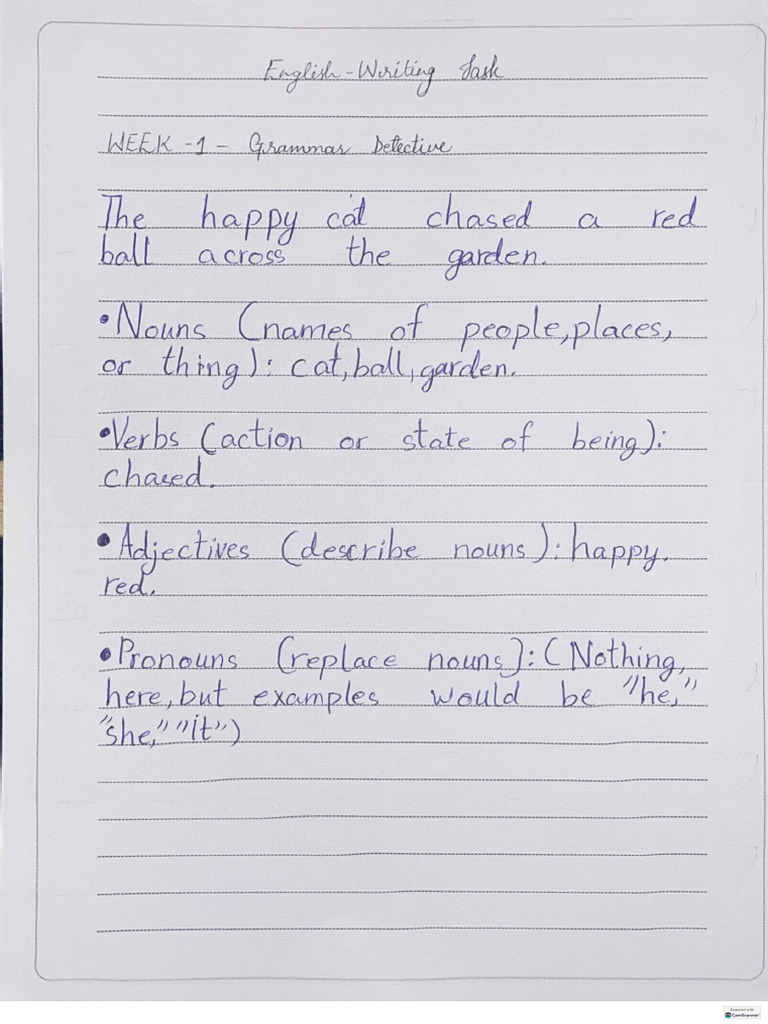 English-Writing Task
WEEK -1 - Grammar Detective
The happy cat chased a red
ball across the garden.
•Nouns (names of people,places,
or thing): cat,ball,garden.
•Verbs (action or state of being):
chased.
•Adjectives (describe nouns): happy.
red.
•Pronouns (replace nouns): (Nothing,
here,but examples would be "he,"
"she," "it")
Scanned with
CamScanner